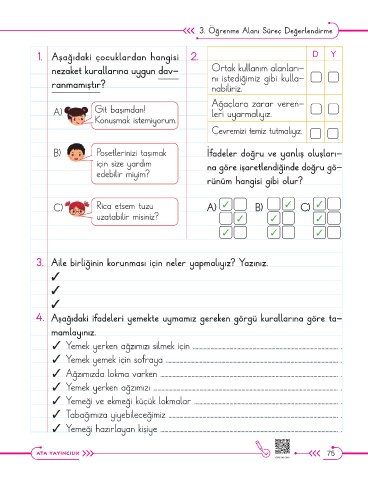 3. Öğrenme Alanı Süreç Değerlendirme
1. Aşağıdaki çocuklardan hangisi
nezaket kurallarına uygun dav-
ranmamıştır?
A) Git başımdan!
Konuşmak istemiyorum.
B) Poşetlerinizi taşımak
için size yardım
edebilir miyim?
C) Rica etsem tuzu
uzatabilir misiniz?
2. D Y
Ortak kullanım alanları-
nı istediğimiz gibi kulla-
nabiliriz.
Ağaçlara zarar veren-
leri uyarmalıyız.
Çevremizi temiz tutmalıyız.
İfadeler doğru ve yanlış oluşları-
na göre işaretlendiğinde doğru gö-
rünüm hangisi gibi olur?
A) ✓ B) ✓ C) ✓
✓ ✓ ✓
✓ ✓ ✓
3. Aile birliğinin korunması için neler yapmalıyız? Yazınız.
✓
✓
✓
4. Aşağıdaki ifadeleri yemekte uymamız gereken görgü kurallarına göre ta-
mamlayınız.
✓ Yemek yerken ağzımızı silmek için .
✓ Yemek yemek için sofraya .
✓ Ağzımızda lokma varken .
✓ Yemek yerken ağzımızı .
✓ Yemeği ve ekmeği küçük lokmalar .
✓ Tabağımıza yiyebileceğimiz .
✓ Yemeği hazırlayan kişiye .
ATA YAYINCILIK
75